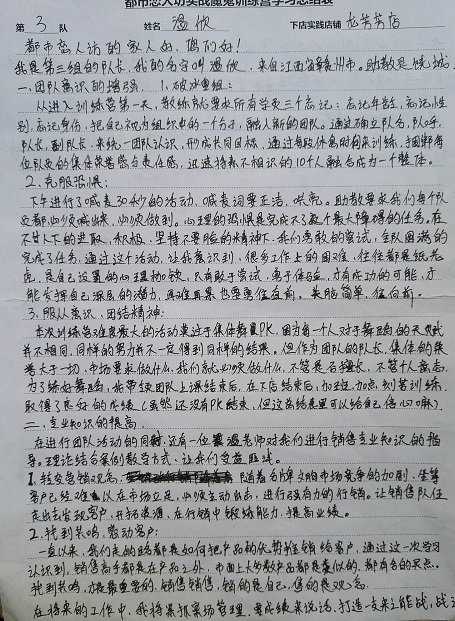 都市恋人访实战魔鬼训练营学习总结表
第 3 队 姓名 温欣 下店实践店铺 龙芳芳店
都市恋人访的家人好，偶们好！
我是第三组的队长，我的名字叫温欣，来自江西省赣州市。助教是饶城
一、团队意识的增强 1、破冰重组：
从进入训练营第一天，教练就要求所有学员三个忘记：忘记年龄，忘记性
别，忘记身份，把自己视为组织中的一个分子，融入新的团队。通过确立队名，队呼，
队长，副队长，来统一团队认识，形成共同目标，通过每段休息时间来训练，捆绑每
位队员的集体荣誉感与责任感，迅速将表不相识的10个人融合成为一个整体。
2、克服恐惧：
下午进行了喊麦30秒的活动，喊麦词要正洁，哄亮。助教要求我们每个队
员都必须喊出来，必须做到。心理的恐惧是完成不了这个最大障碍的任务。在
不甘人下的进取，积极，坚持不要脸的精神下，我们勇敢的尝试，全队圆满的
完成了任务，通过这个活动，让我意识到，很多工作上的困难，往往都是纸老
虎，是自己设置的心理枷锁，只有敢于尝试，勇于体验，才有成功的可能，才
能发挥自己深层的潜力，再难再累也要勇往直前。美脸简单，往向前。
3、服从意识，团结精神：
本次训练营难度最大的活动莫过于集体舞蹈PK，因为每一个人对于舞蹈的天赋
并不相同，同样的努力并不一定得到同样的结果。但作为团队的队长，集体的荣
誉大于一切，市场要求做什么，我们就必须做什么，不管是否擅长，不管个人喜恶，
为了练好舞蹈，我带领团队上课结束后，在下店结束后，加班加点，刻苦训练，
取得了良好的成绩（虽然还没有PK结束，但这总结表里可以给自己信心哦）。
二、专业知识的提高
在进行团队活动的同时，还有一位温老师对我们进行销售专业知识的指
导。理论结合案例教学方式，让我们受益匪浅。
1、转变营销观念，随着名牌文胸市场竞争的加剧，坐等
客户已经难以在市场立足，必须主动出击，进行强有力的行销。让销售队伍
走出去发现客户，开拓渠道，在行销中锻练能力，提高业绩。
2、找到共鸣，感动客户：
一直以来，我们走的路都是如何把产品的优势推销给客户，通过这一次学习
认识到，销售高手都是在产品之外，市面上大多数产品都是类似的，都有各的买点。
找到共鸣，才是最重要的，销售销售，销的是自己，售的是观念。
在将来的工作中，我将狠抓卖场管理，要成绩来说话，打造一支来之能战，战之